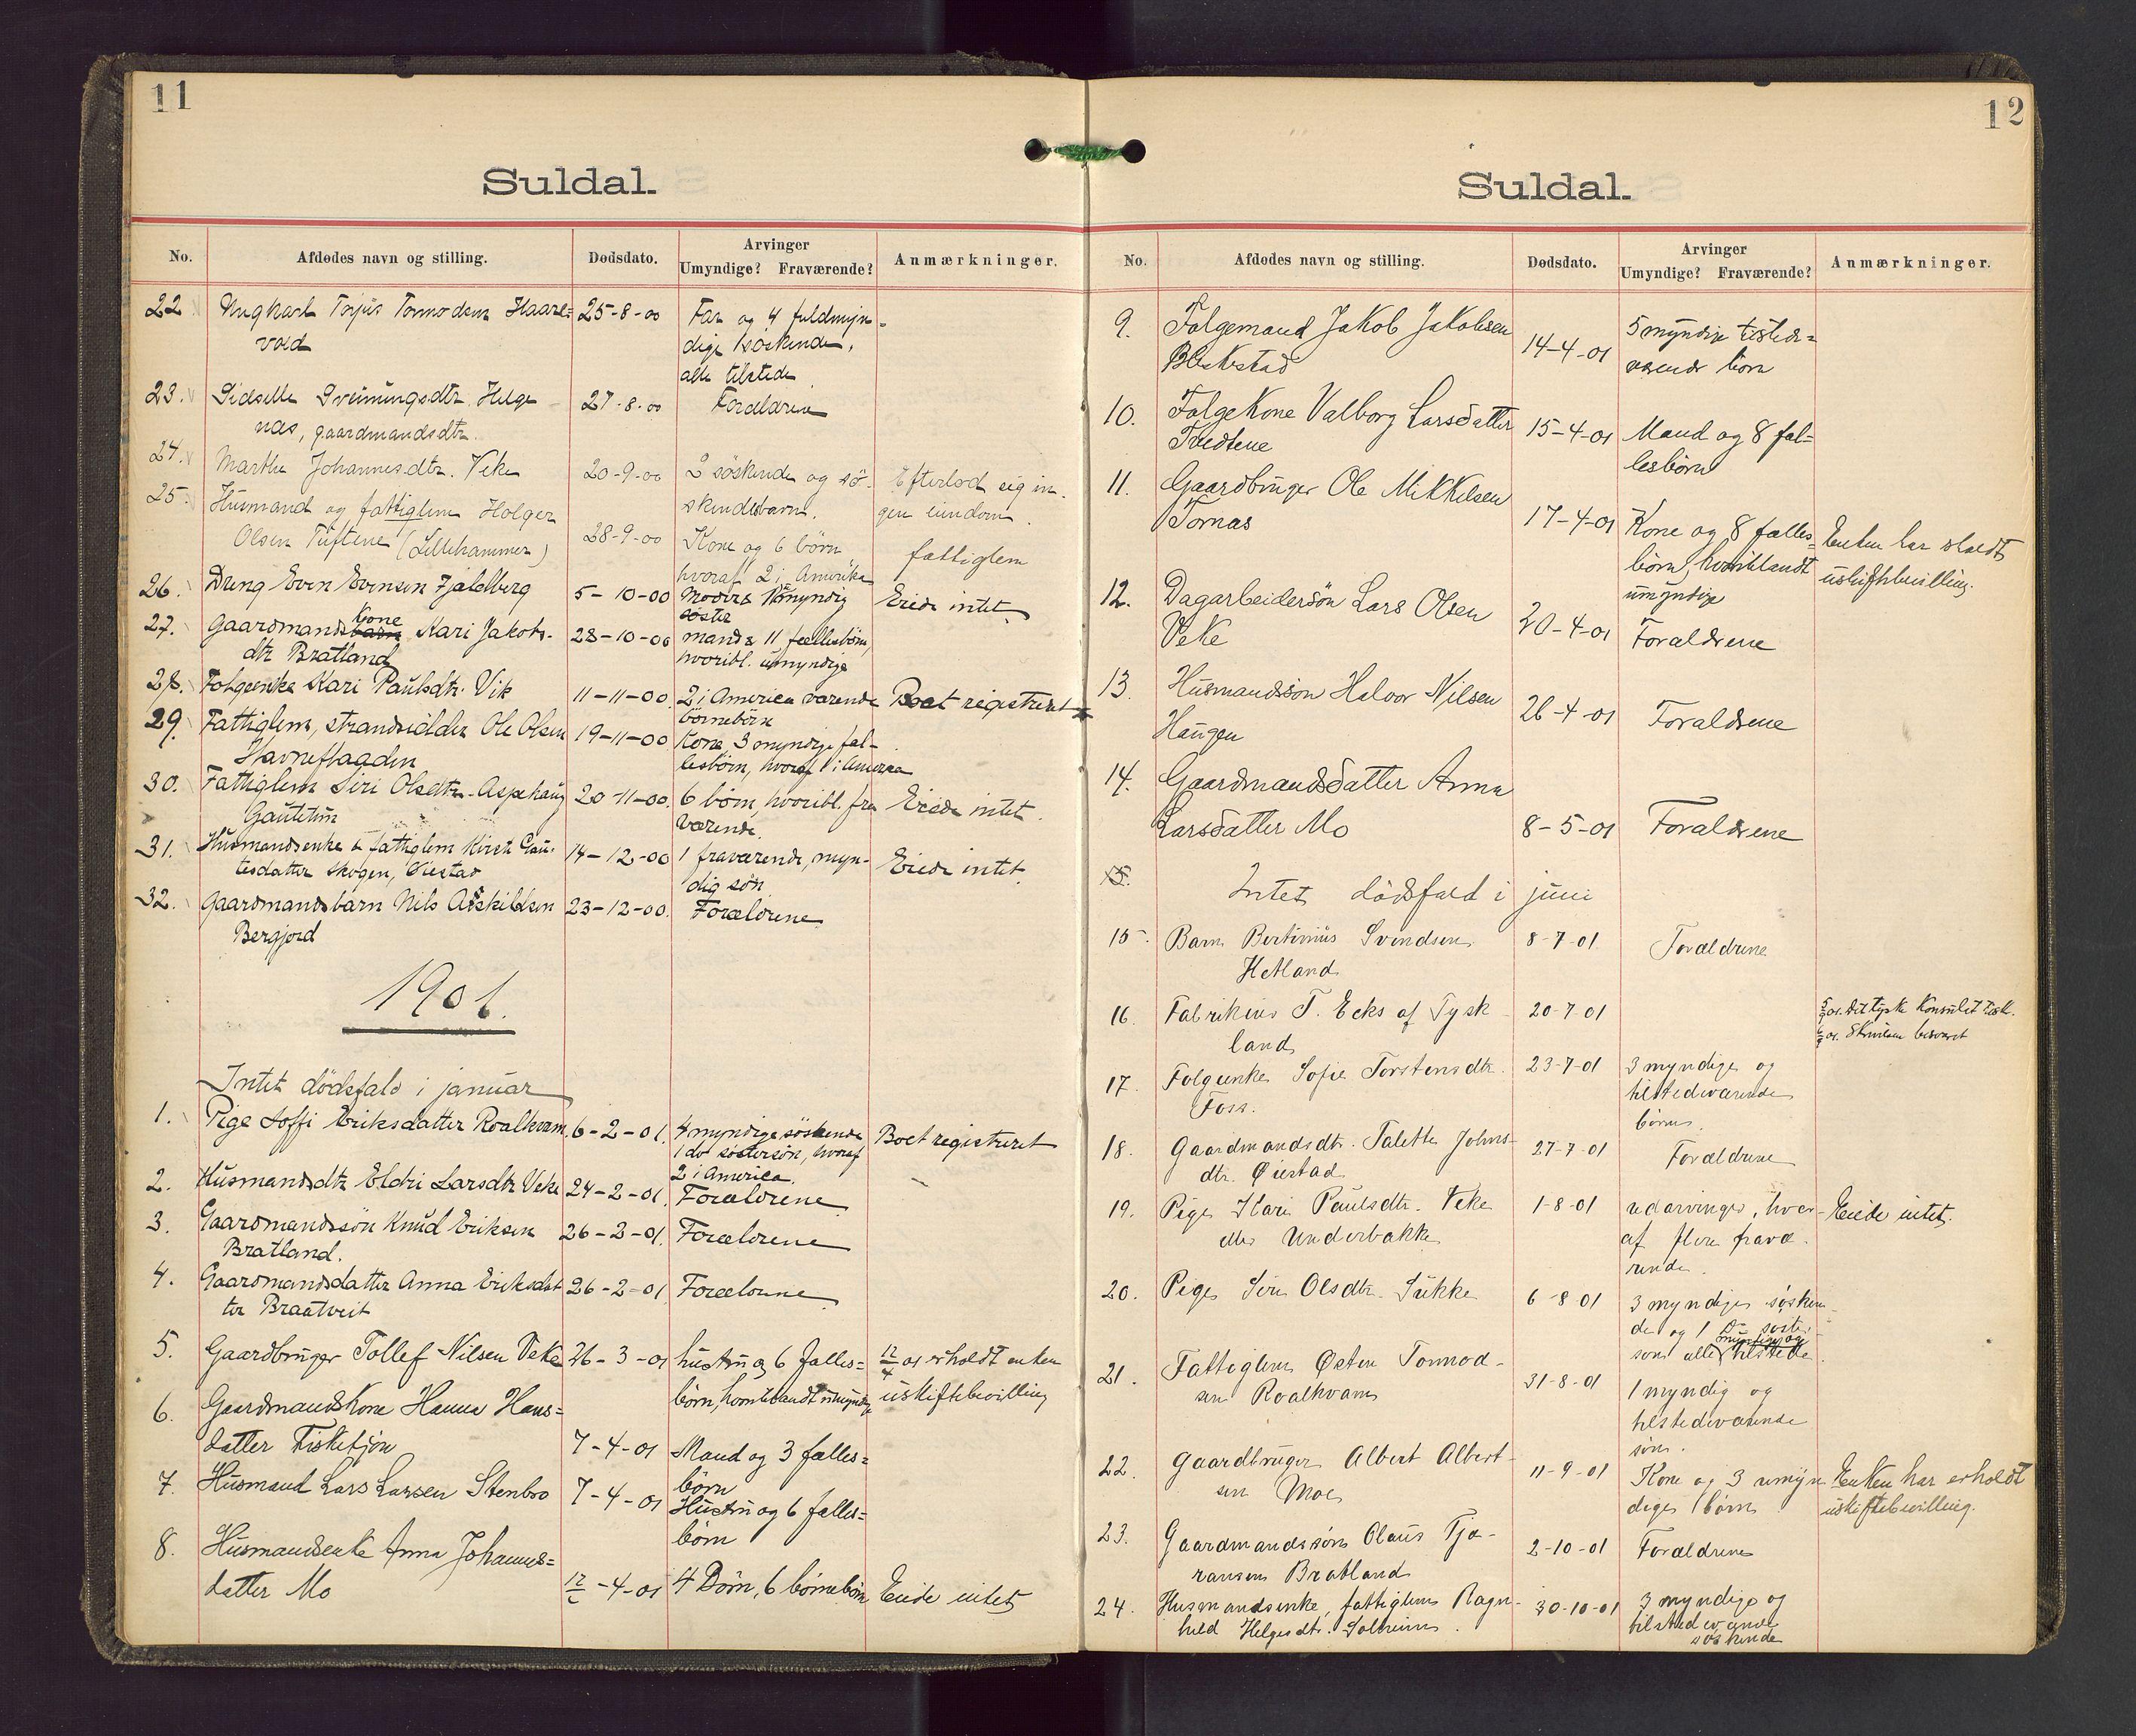 11
Suldal.
No. Afdødes navn og stilling. Dødsdato. Arvinger Umyndige? Fraværende? Anmærkninger.
22 Ungkarl Torjus Tormodsen Haare= 25-8-00 Far og 4 fuldmyn-
vold dige søskende,
alle tilstede
23. Sidselle Sveinungsdtr. Helge 27-8-00 Forældrene
næs, gaardmandsdtr.
24. Marthe Johannesdtr. Veke 20-9-00 2 søskende og sø- Efterlod sig in
skendebarn. gen eiendom.
25. Husmand og fattiglem Holger 28-9-00 Kone og 6 børn fattiglem
Olsen Tuftene (Lillehammer) hvoraf 2 i Amerika
26. Dreng Even Evensen Fjeldberg 5-10-00 Moder & umyndig Eiede intet
søster
27. Gaardmandsbarn Kone Kari Jakobs- 28-10-00 mand & 11 fællesbørn,
dtr Bratland hvoribl. umyndige
28. Folgeenke Kari Paulsdtr. Vik 11-11-00. 2 i America værende Boet registreret
børnebørn
29. Fattiglem, strandsidder Ole Olsen 19-11-00 Kone, 3 myndige fæl-
Havneflaaden lesbørn, hvoraf 1 i America
30. Fattiglem Siri Olsdtr. Aspehaug 20-11-00. 6 børn, hvoribl. fra Eiede intet.
Gautetun værende.
31. Husmandsenke & fattiglem Kirsti Gau- 14-12-00 1 fraværende, myn- Eiede intet.
tesdatter Skogen, Øiestad dig søn
32. Gaardmandsbarn Nils Askildsen 23-12-00. Forældrene
Bergjord
1901.
Intet dødsfald i januar
1. Pige Soffi Eriksdatter Roalkvam. 6-2-01. 4 myndige søskende Boet registreret
1 do søstersøn, hvoraf
2 i America.
2. Husmandsdtr Eldri Larsdtr Veke 24-2-01 Forældrene
3. Gaardmandssøn Knud Eriksen 26-2-01. Forældrene
Bratland.
4. Gaardmandsdatter Anna Eriksdat 26-2-01 Forældrene
ter Braatveit
5. Gaardbruger Tollef Nilsen Veke 26-3-01 hustru og 6 fælles= 12/4 01 erholdt enken
børn, hvoriblandt umyndige uskiftebevilling
6. Gaardmandskone Hanna Hans=
datter Fisketjøn 7-4-01 Mand og 3 fælles=
børn
7. Husmand Lars Larsen Stenbro 7-4-01 Hustru og 6 fælles=
børn
8. Husmandsenke Anna Johannes=
datter Mo 12-4-01 4 Børn, 6 børnebørn Eiede intet
12
Suldal.
No. Afdødes navn og stilling. Dødsdato. Arvinger Umyndige? Fraværende? Anmærkninger.
9. Folgemand Jakob Jakobsen 14-4-01 5 myndige tilstede=
Bleikestad værende børn
10. Folgekone Valborg Larsdatter 15-4-01 Mand og 8 fæl=
Tvedtene lesbørn
11. Gaardbruger Ole Mikkelsen
Tornæs 17-4-01 Kone og 8 fælles= Enken har
børn, hvoriblandt uskiftebevilling.
umyndige
12. Dagarbeidersøn Lars Olsen
Veke 20-4-01 Forældrene
13. Husmandssøn Halvor Nilsen
Haugen 26-4-01 Forældrene
14. Gaardmandsdatter Anna
Larsdatter Mo 8-5-01 Forældrene
15. Intet dødsfald i juni
15. Barn Bertinius Svendsen 8-7-01. Forældrene
Hetland
16. Fabrikeier T. Ecks af Tysk 20-7-01 det tyske konsulat
land. Skrivelsen besvaret
17. Folgeenke Sofie Torstensdtr. 23-7-01 3 myndige og
Foss. tilstedeværende
børn.
18. Gaardmandsdtr. Talette Johns- 27-7-01 Forældrene
dtr. Øiestad
19. Pige Kari Paulsdtr. Veke 1-8-01 udarvinger, hvor- Eiede intet.
eller Underbakke af flere fravæ-
rende.
20. Pige Siri Olsdtr. Sukke 6-8-01 3 myndige søsken-
de og 1 Do søster-
søn alle myndige og tilstede
21. Fattiglem Østen Tormod- 31-8-01 1 myndig og
sen Roalkvam tilstedeværende
søn.
22. Gaardbruger Albert Albert- 11-9-01 Kone og 3 umyn Enken har erholdt
sen Moe dige børn uskiftebevilling.
23. Gaardmandssøn Olaus Tjø- 2-10-01 Forældrene
ransen Bratland
24. Husmandsenke, fattiglem Ragn- 30-10-01 3 myndige og
hild Helgesdtr. Solheim. tilstedeværende
søskende